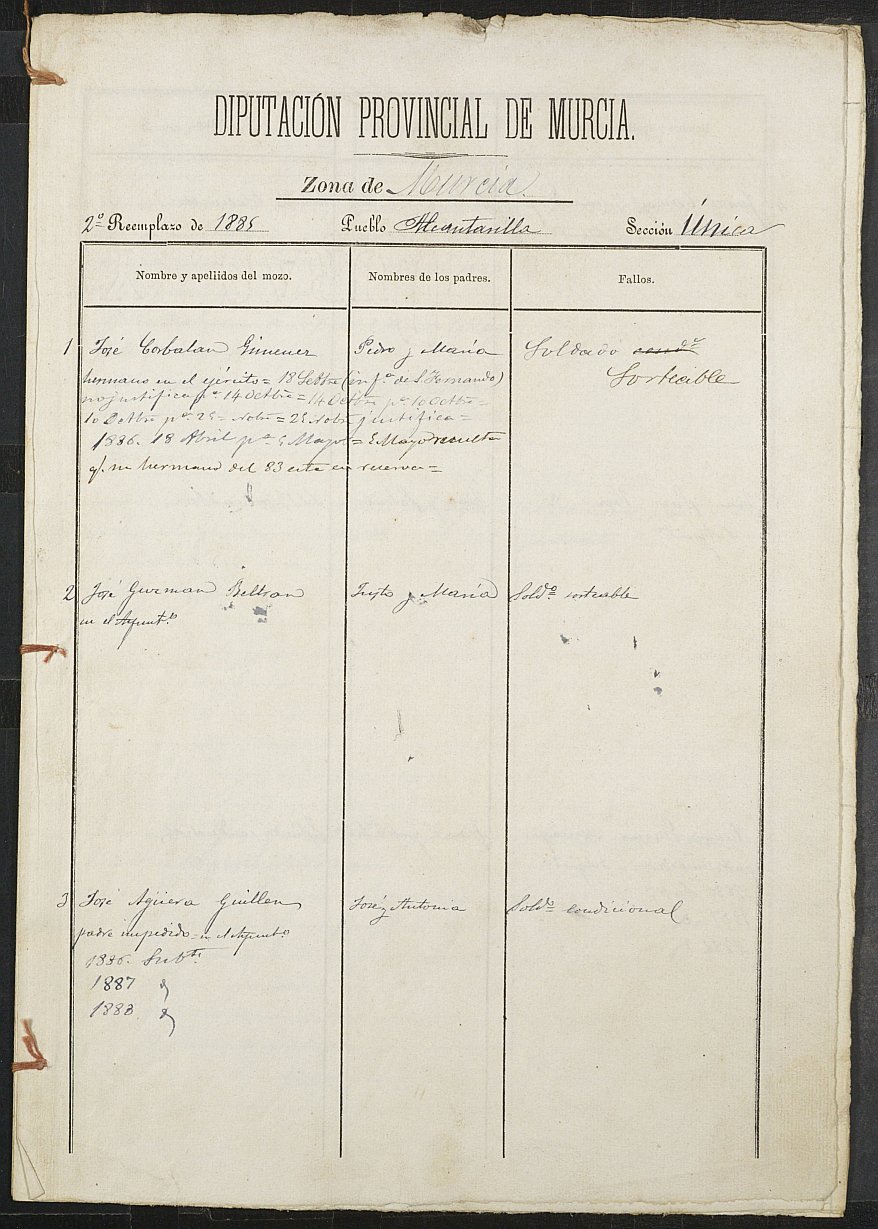 DIPUTACIÓN PROVINCIAL DE MURCIA.
Zona de Murcia
2º Reemplazo de 1885 Pueblo Alcantarilla Sección Única
Nombre y apellidos del mozo. Nombres de los padres. Fallos.
1 José Corbalan Gimenez Pedro y María Soldado condl
Sorteable
hermano en el ejército = 18 Setbre (in fª de S. Fernando)
no justifica pª 14 Octbre = 14 Octbre pª 10 Octbre =
10 Octbre pª 25 Nobre = 25 Nobre justifica =
1886. 18 Abril pª 5 Mayo = 5 Mayo resulta
q. su hermano del 83 esta en reserva =
2 José Guzman Beltran Justo y María Soldº sorteable
en el Ayuntº
3 José Agüera Guillen José y Antonia Soldº condicional
padre impedido = en el Ayuntº
1886. Subte
1887 "
1888 "